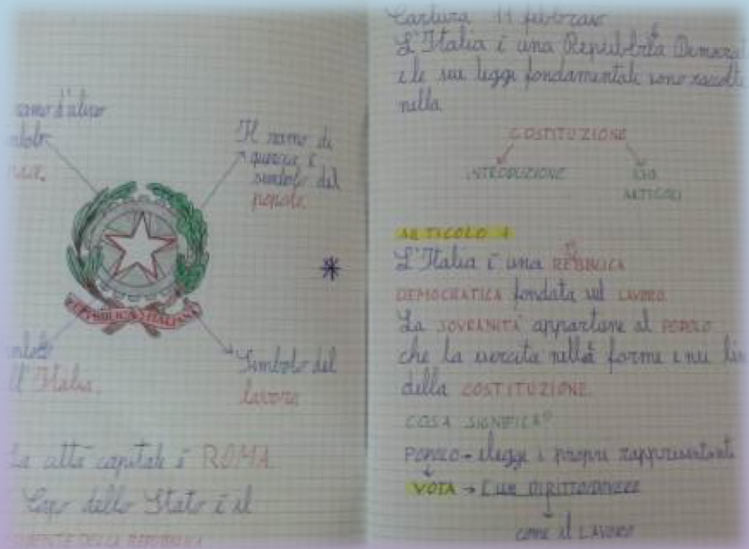 ramo d'ulivo
pace.
Il ramo di
quercia è
simbolo del
popolo.
REPUBBLICA ITALIANA
dell'Italia.
Simbolo del
lavoro
La città capitale è ROMA.
Capo dello Stato è il
PRESIDENTE DELLA REPUBBLICA
Cartura 11 febbraio
L'Italia è una Repubblica Democrat
e le sue leggi fondamentali sono raccolte
nella
COSTITUZIONE
INTRODUZIONE
139
ARTICOLI
ARTICOLO 1
L'Italia è una REBBLICA
PU
DEMOCRATICA fondata sul LAVORO.
La SOVRANITÀ appartiene al POPOLO
che la esercita nelle forme e nei lim
della COSTITUZIONE.
COSA SIGNIFICA?
POPOLO - elegge i propri rappresentanti
VOTA → È UN DIRITTO/DOVERE
come il LAVORO